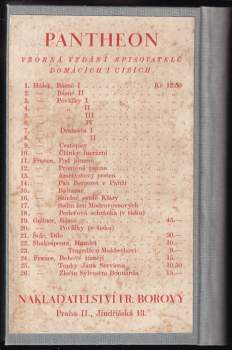 PANTHEON
VZORNÁ VYDÁNÍ SPISOVATELŮ
DOMÁCÍCH I CIZÍCH
1. Hálek, Básně I Kč 12·80
2. — Básně II
3. — Povídky I
4. — „ II
5. — „ III
6. — „ IV
7. — Dramata I
8. — „ II
9. — Cestopisy
10. — Články literární
11. France, Pod jilmem
12. — Proutěná panna
13. — Ametystový prsten
14. — Pan Bergeret v Paříži
15. — Baltazar
16. — Studně svaté Kláry
17. — Sedm žen Modrovousových
18. — Perleťová schránka (v tisku)
19. Gellner, Básně
20. — Povídky (v tisku)
21. Šolc, Dílo 30.—
22. Shakespeare, Hamlet
23. — Tragedie o Makbethovi
24. France, Bohové žízní
25. — Touhy Jana Serviena
26. — Zločin Sylvestra Bonnarda
NAKLADATELSTVÍ FR. BOROVÝ
Praha II., Jindřišská 13.